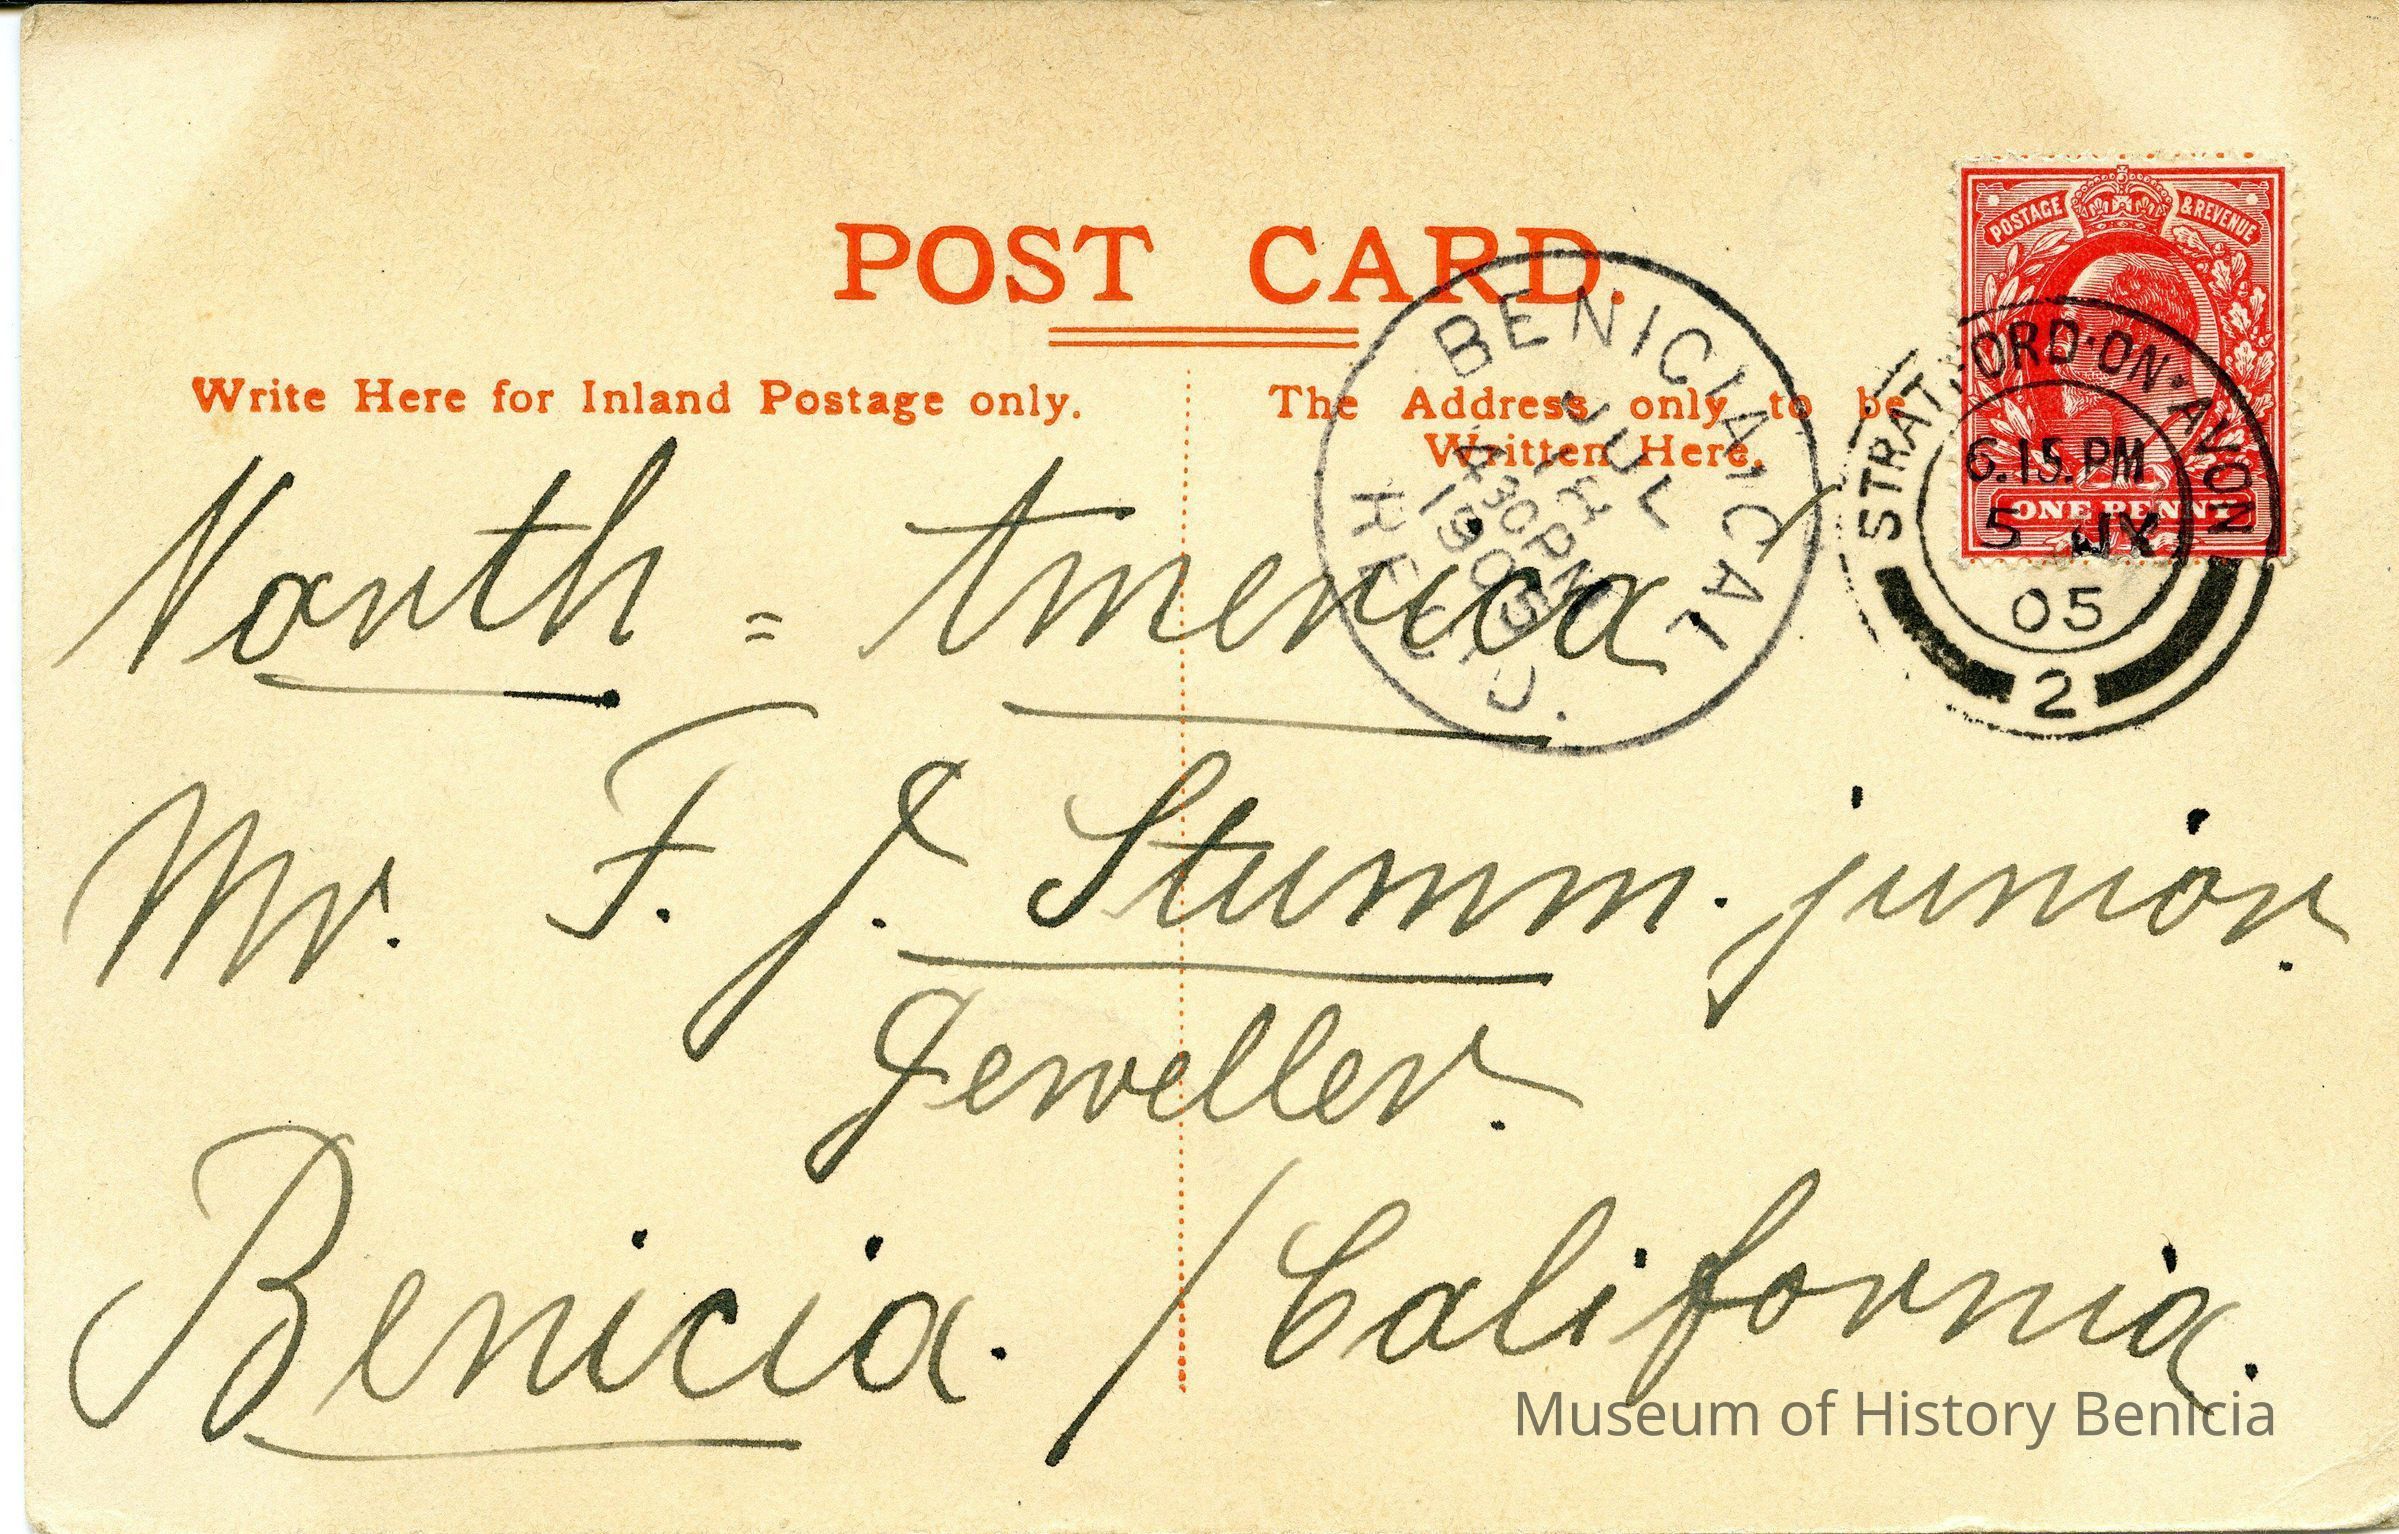 POST CARD.
Write Here for Inland Postage only.
The Address only to be
Written Here.
POSTAGE & REVENUE
ONE PENNY
STRATFORD·ON·AVON
6.15.PM
5 JY
05
2
BENICIA, CAL
JUL
18
430PM
1905
REC'D.
North = America
Mr. F. J. Stumm. junior.
Jeweller.
Benicia. / California.
Museum of History Benicia